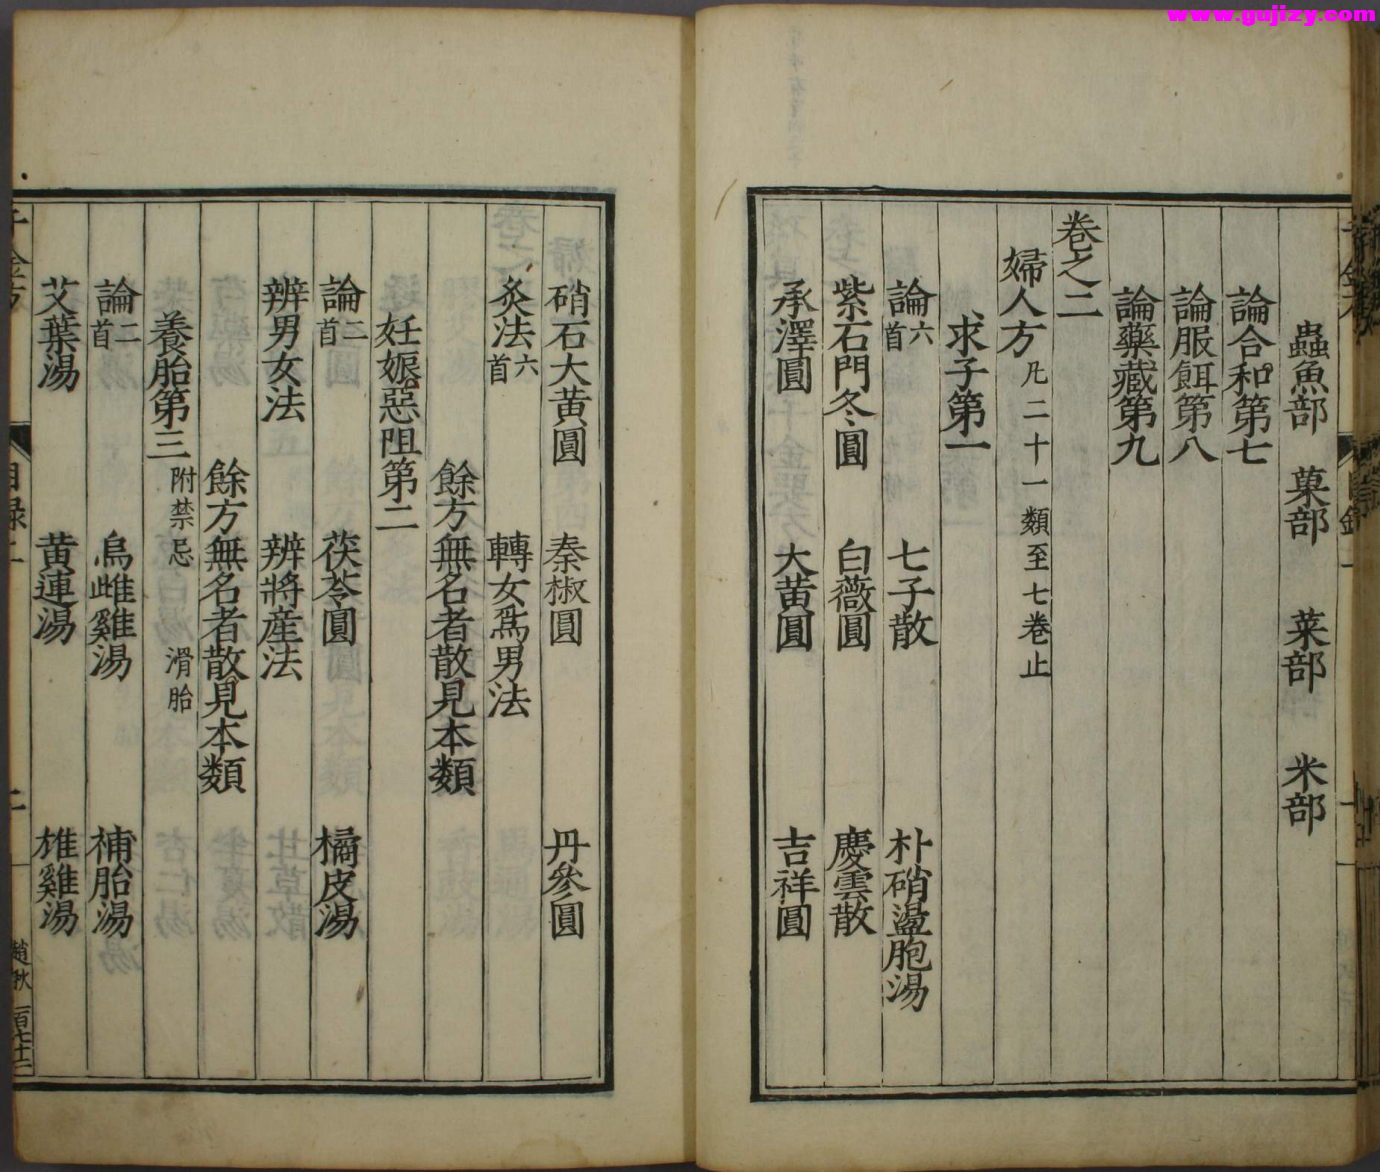 www.gujizy.com
蟲魚部 菓部 菜部 米部
論合和第七
論服餌第八
論藥藏第九
卷之二
婦人方 凡二十一類至七卷止
求子第一
論六首 七子散 朴硝盪胞湯
紫石門冬圓 白薇圓 慶雲散
承澤圓 大黄圓 吉祥圓
硝石大黄圓 秦椒圓 丹參圓
灸法六首 轉女爲男法
餘方無名者散見本類
妊娠惡阻第二
論二首 茯苓圓 橘皮湯
辨男女法 辨將産法
餘方無名者散見本類
養胎第三 附禁忌 滑胎
論二首 烏雌雞湯 補胎湯
艾葉湯 黄連湯 雄雞湯